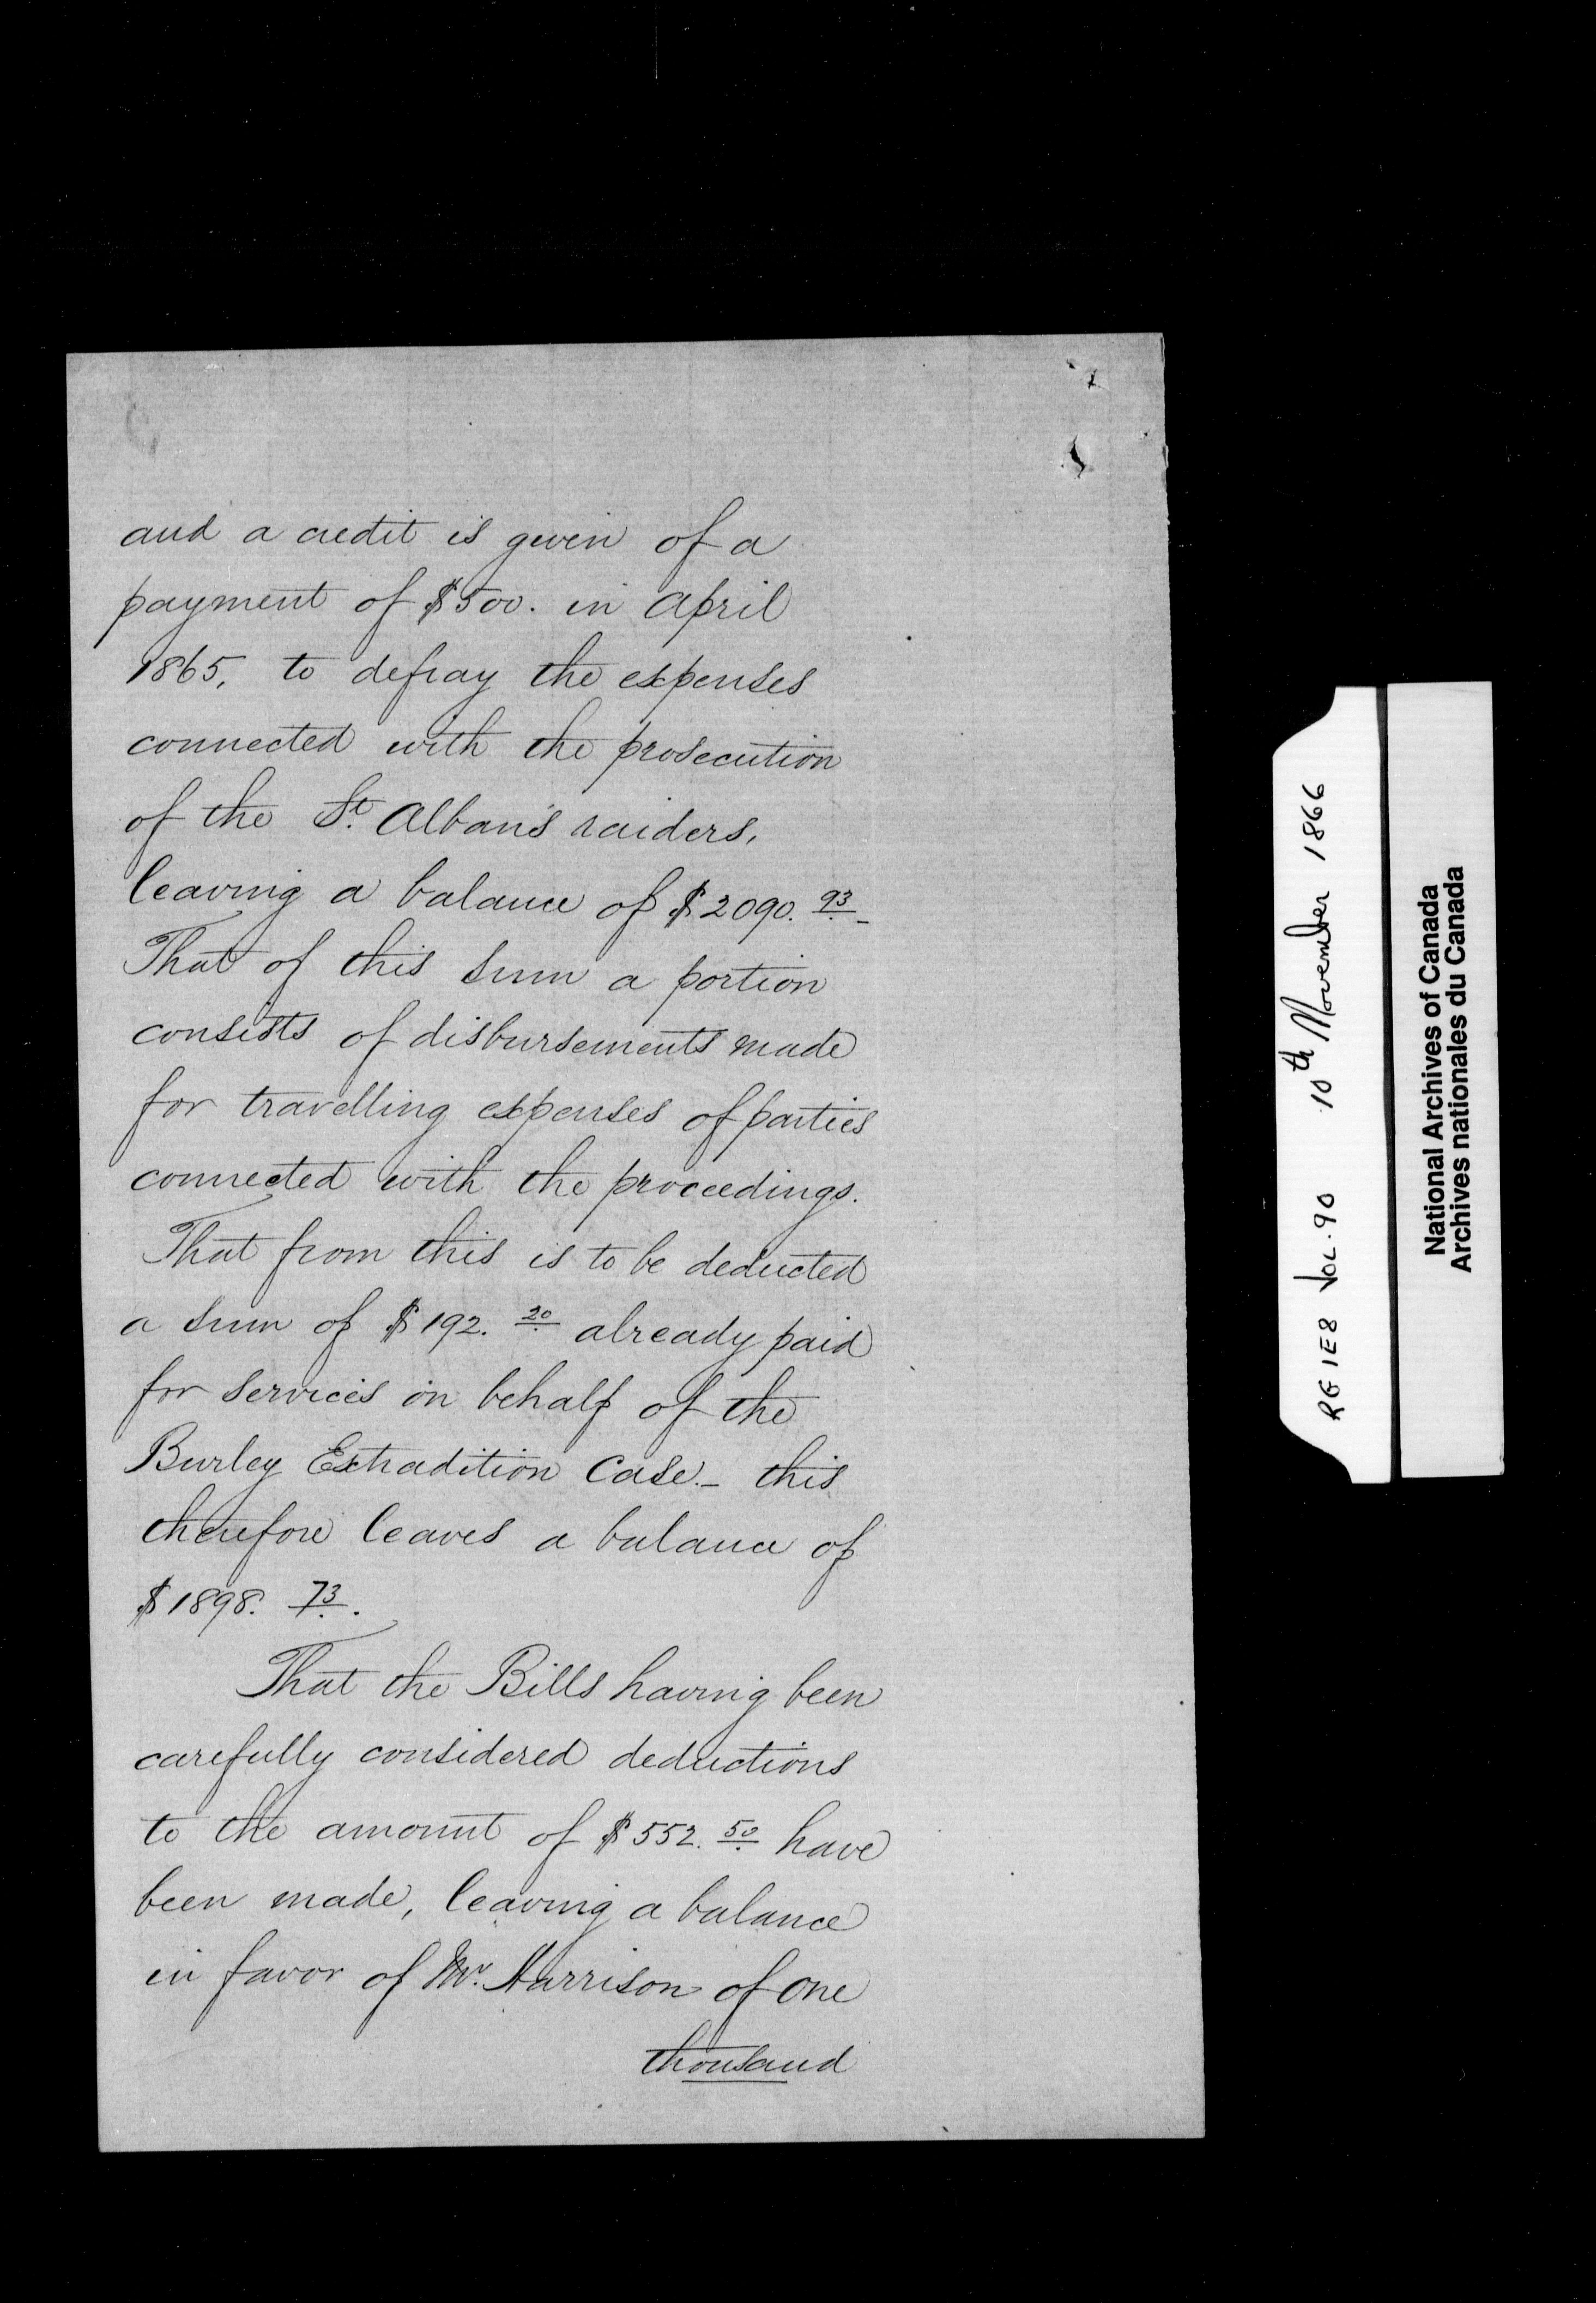 and a credit is given of a
payment of $500. in April
1865, to defray the expenses
connected with the prosecution
of the St. Alban's raiders,
leaving a balance of $2090. 93 –
That of this sum a portion
consists of disbursements made
for travelling expenses of parties
connected with the proceedings.
That from this is to be deducted
a sum of $192. 20 already paid
for services on behalf of the
Burley Extradition Case. – this
therefore leaves a balance of
$1898. 73.
That the Bills having been
carefully considered deductions
to the amount of $552. 50 have
been made, leaving a balance
in favor of Mr. Harrison of One
thousand
RG 1E8 Vol. 90 10th November 1866
National Archives of Canada
Archives nationales du Canada